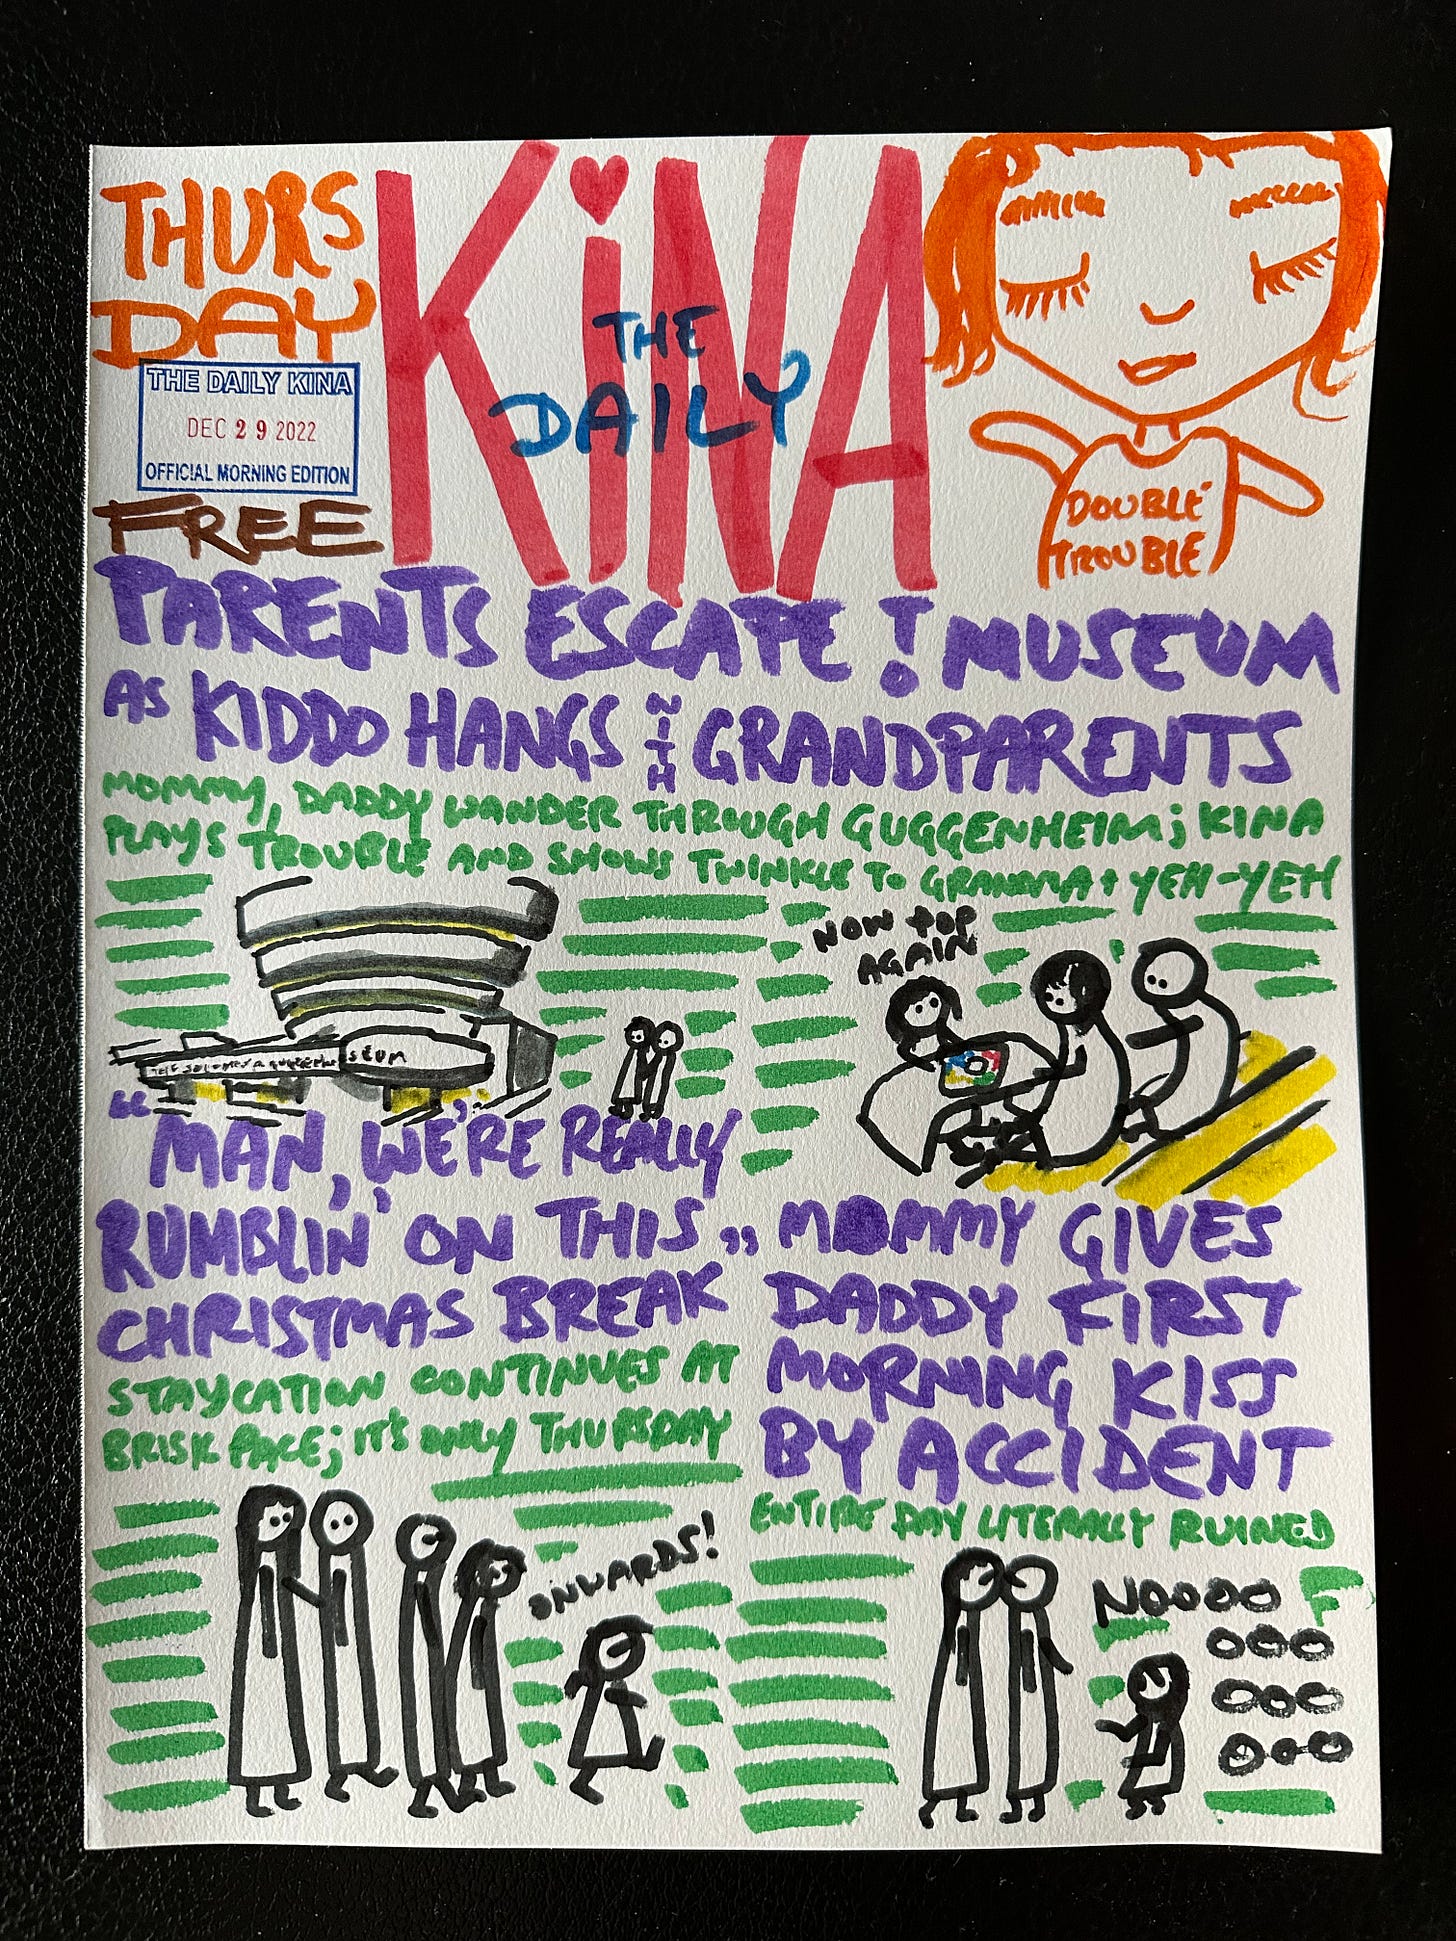 THURS
DAY
THE DAILY KINA
DEC 29 2022
OFFICIAL MORNING EDITION
FREE
KiNA
THE
DAILY
DOUBLE
TROUBLE
PARENTS ESCAPE! MUSEUM
AS KIDDO HANGS WITH GRANDPARENTS
MOMMY, DADDY WANDER THROUGH GUGGENHEIM; KINA
PLAYS TROUBLE AND SHOWS TWINKLE TO GRANDMA + YEH-YEH
NOW POP
AGAIN
"MAN, WE'RE REALLY
RUMBLIN' ON THIS"
CHRISTMAS BREAK
STAYCATION CONTINUES AT
BRISK PACE; IT'S ONLY THURSDAY
ONWARDS!
MOMMY GIVES
DADDY FIRST
MORNING KISS
BY ACCIDENT
ENTIRE DAY LITERALLY RUINED
NOOOO
OOO
OOO
OOO